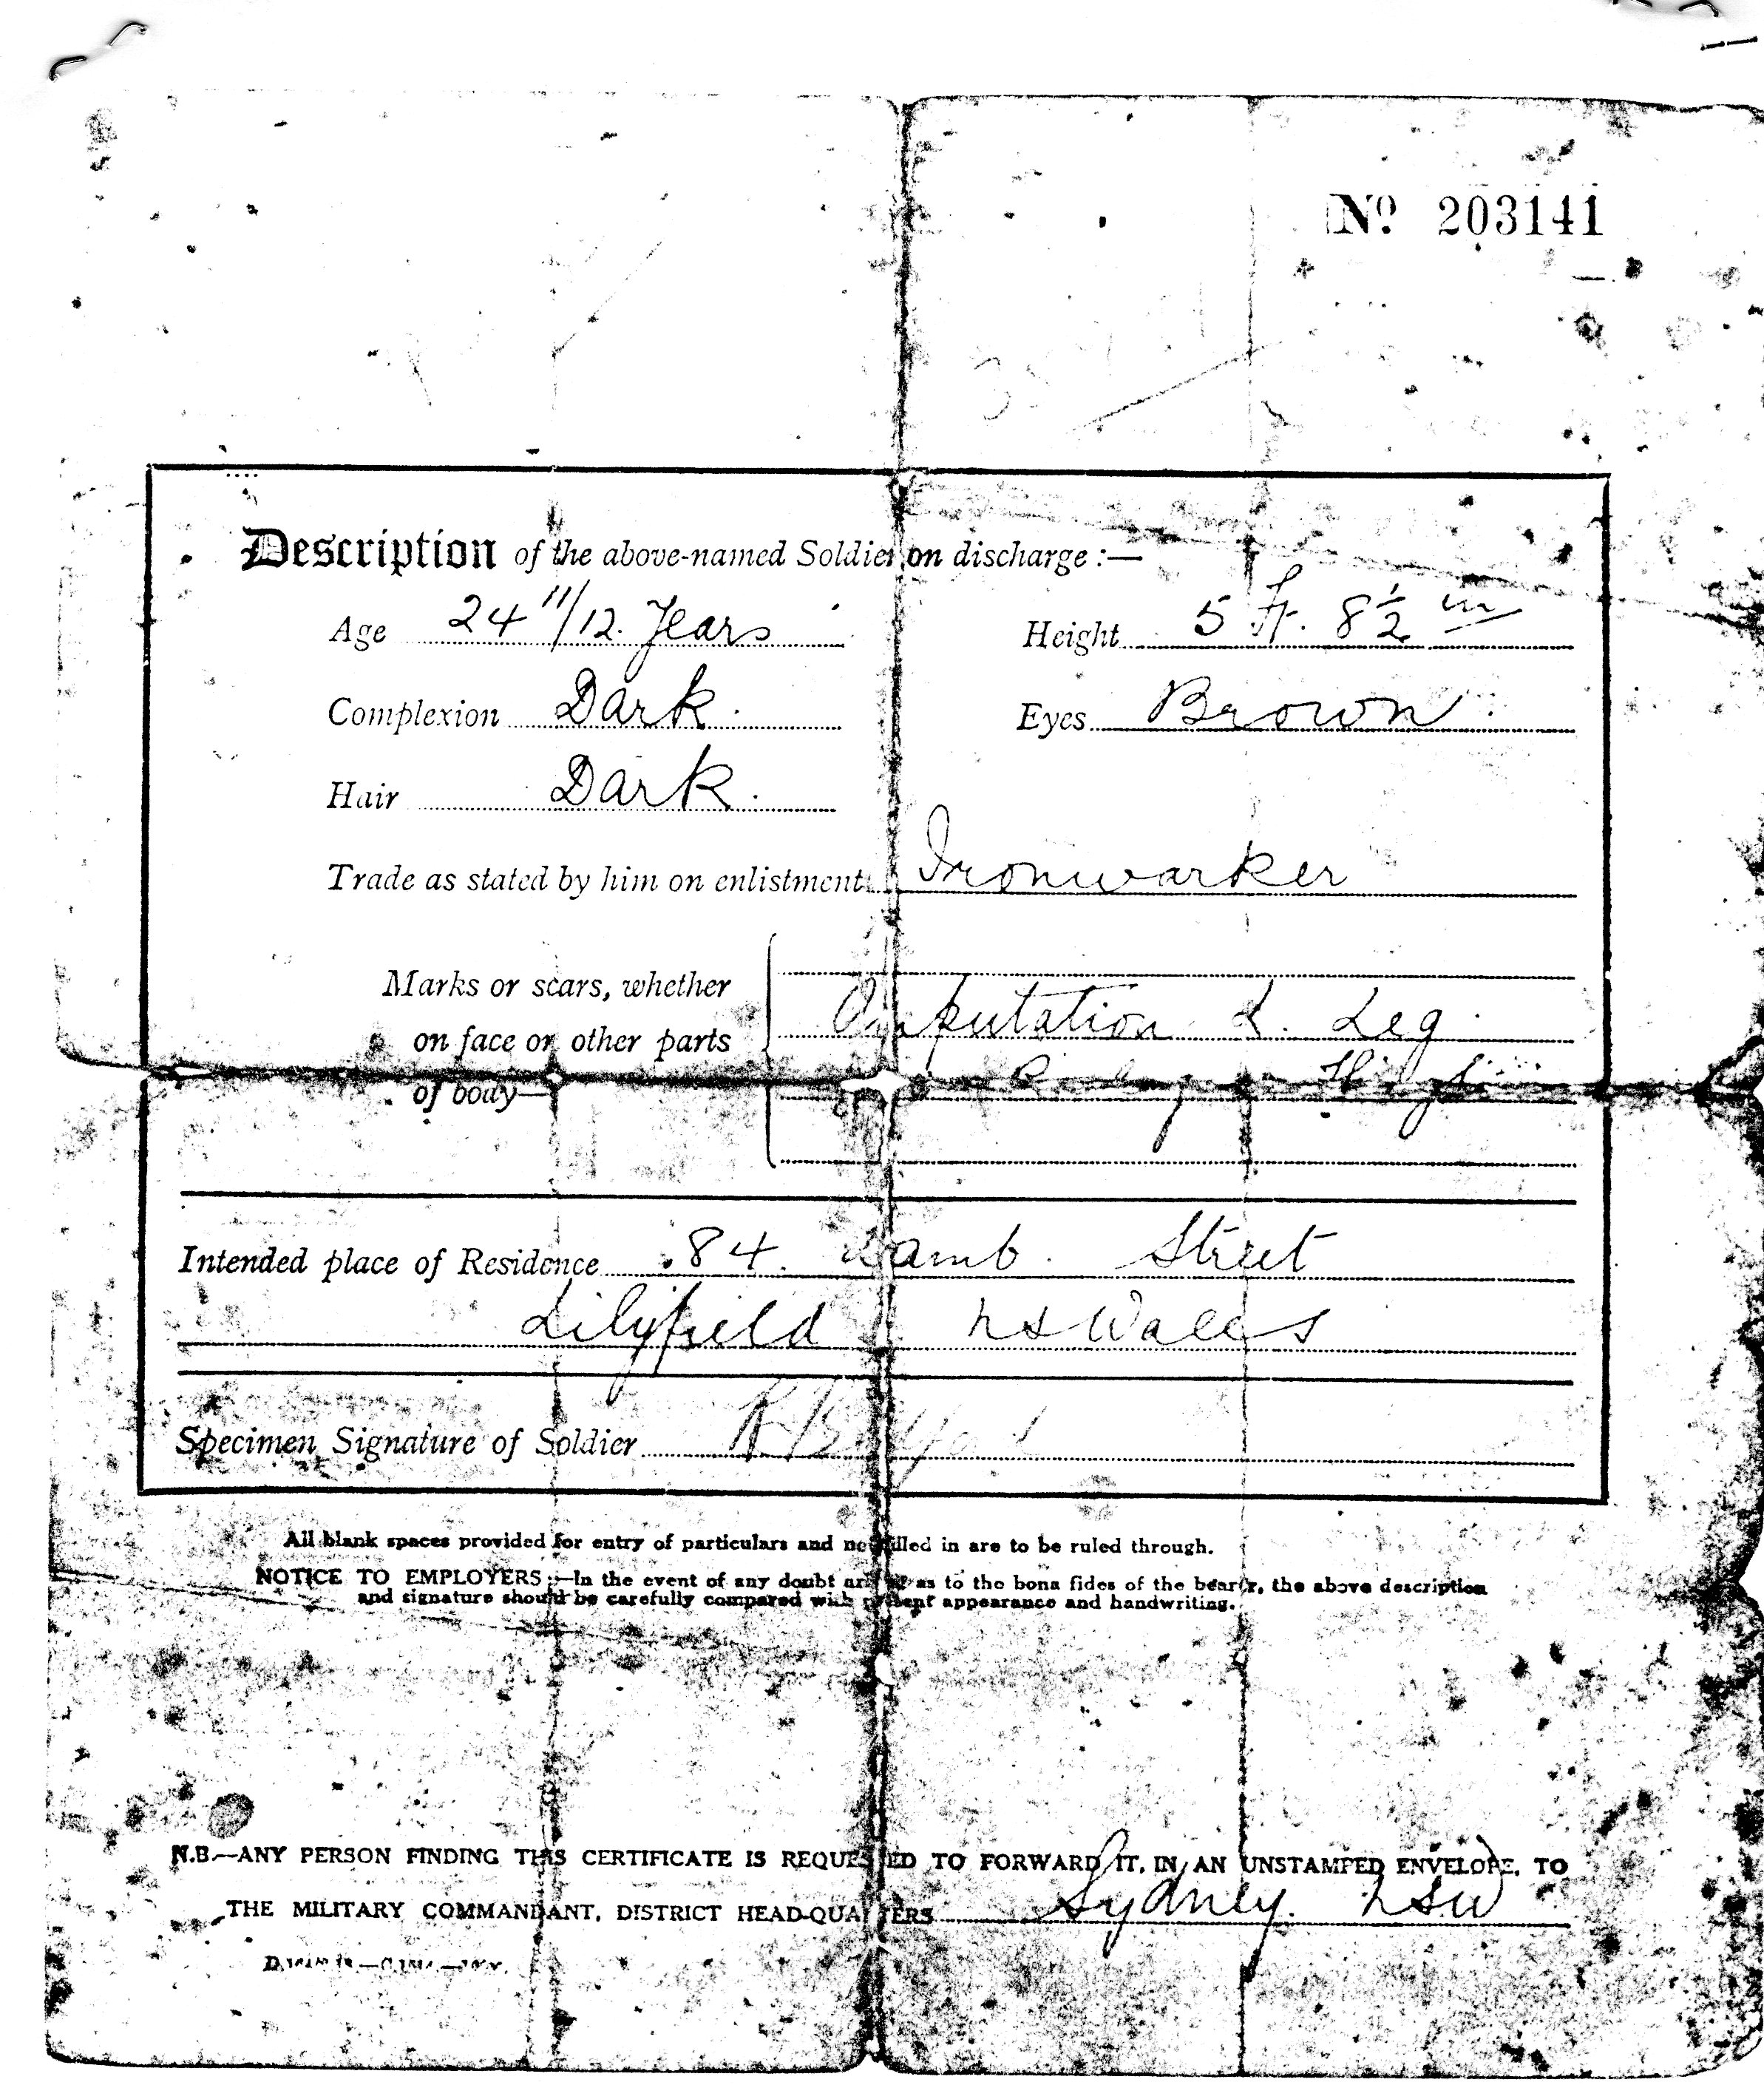 No. 203141
Description of the above-named Soldier on discharge :—
Age 24 11/12. Years Height 5 ft. 8½ in
Complexion Dark. Eyes Brown.
Hair Dark.
Trade as stated by him on enlistment Ironwarker
Marks or scars, whether
on face or other parts Amputation L. Leg.
of body—
Intended place of Residence 84. Lamb. Street
Lilyfield NS Wales
Specimen Signature of Soldier
All blank spaces provided for entry of particulars and not filled in are to be ruled through.
NOTICE TO EMPLOYERS :—In the event of any doubt arising as to the bona fides of the bearer, the above description
and signature should be carefully compared with present appearance and handwriting.
N.B.—ANY PERSON FINDING THIS CERTIFICATE IS REQUESTED TO FORWARD IT, IN AN UNSTAMPED ENVELOPE, TO
THE MILITARY COMMANDANT, DISTRICT HEAD-QUARTERS Sydney. NSW